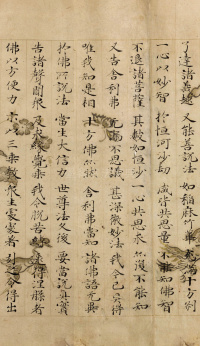 了達諸義趣 又能善說法 如稻麻竹葦 充滿十方剎
一心以妙智 於恒河沙劫 咸皆共思量 不能知佛智
不退諸菩薩 其數如恒沙 一心共思求 亦復不能知
又告舍利弗 無漏不思議 甚深微妙法 我今已具得
唯我知是相 十方佛亦然 舍利弗當知 諸佛語無異
於佛所說法 當生大信力 世尊法久後 要當說真實
告諸聲聞眾 及求緣覺乘 我令脫苦縛 逮得涅槃者
佛以方便力 示以三乘教 眾生處處著 引之令得出